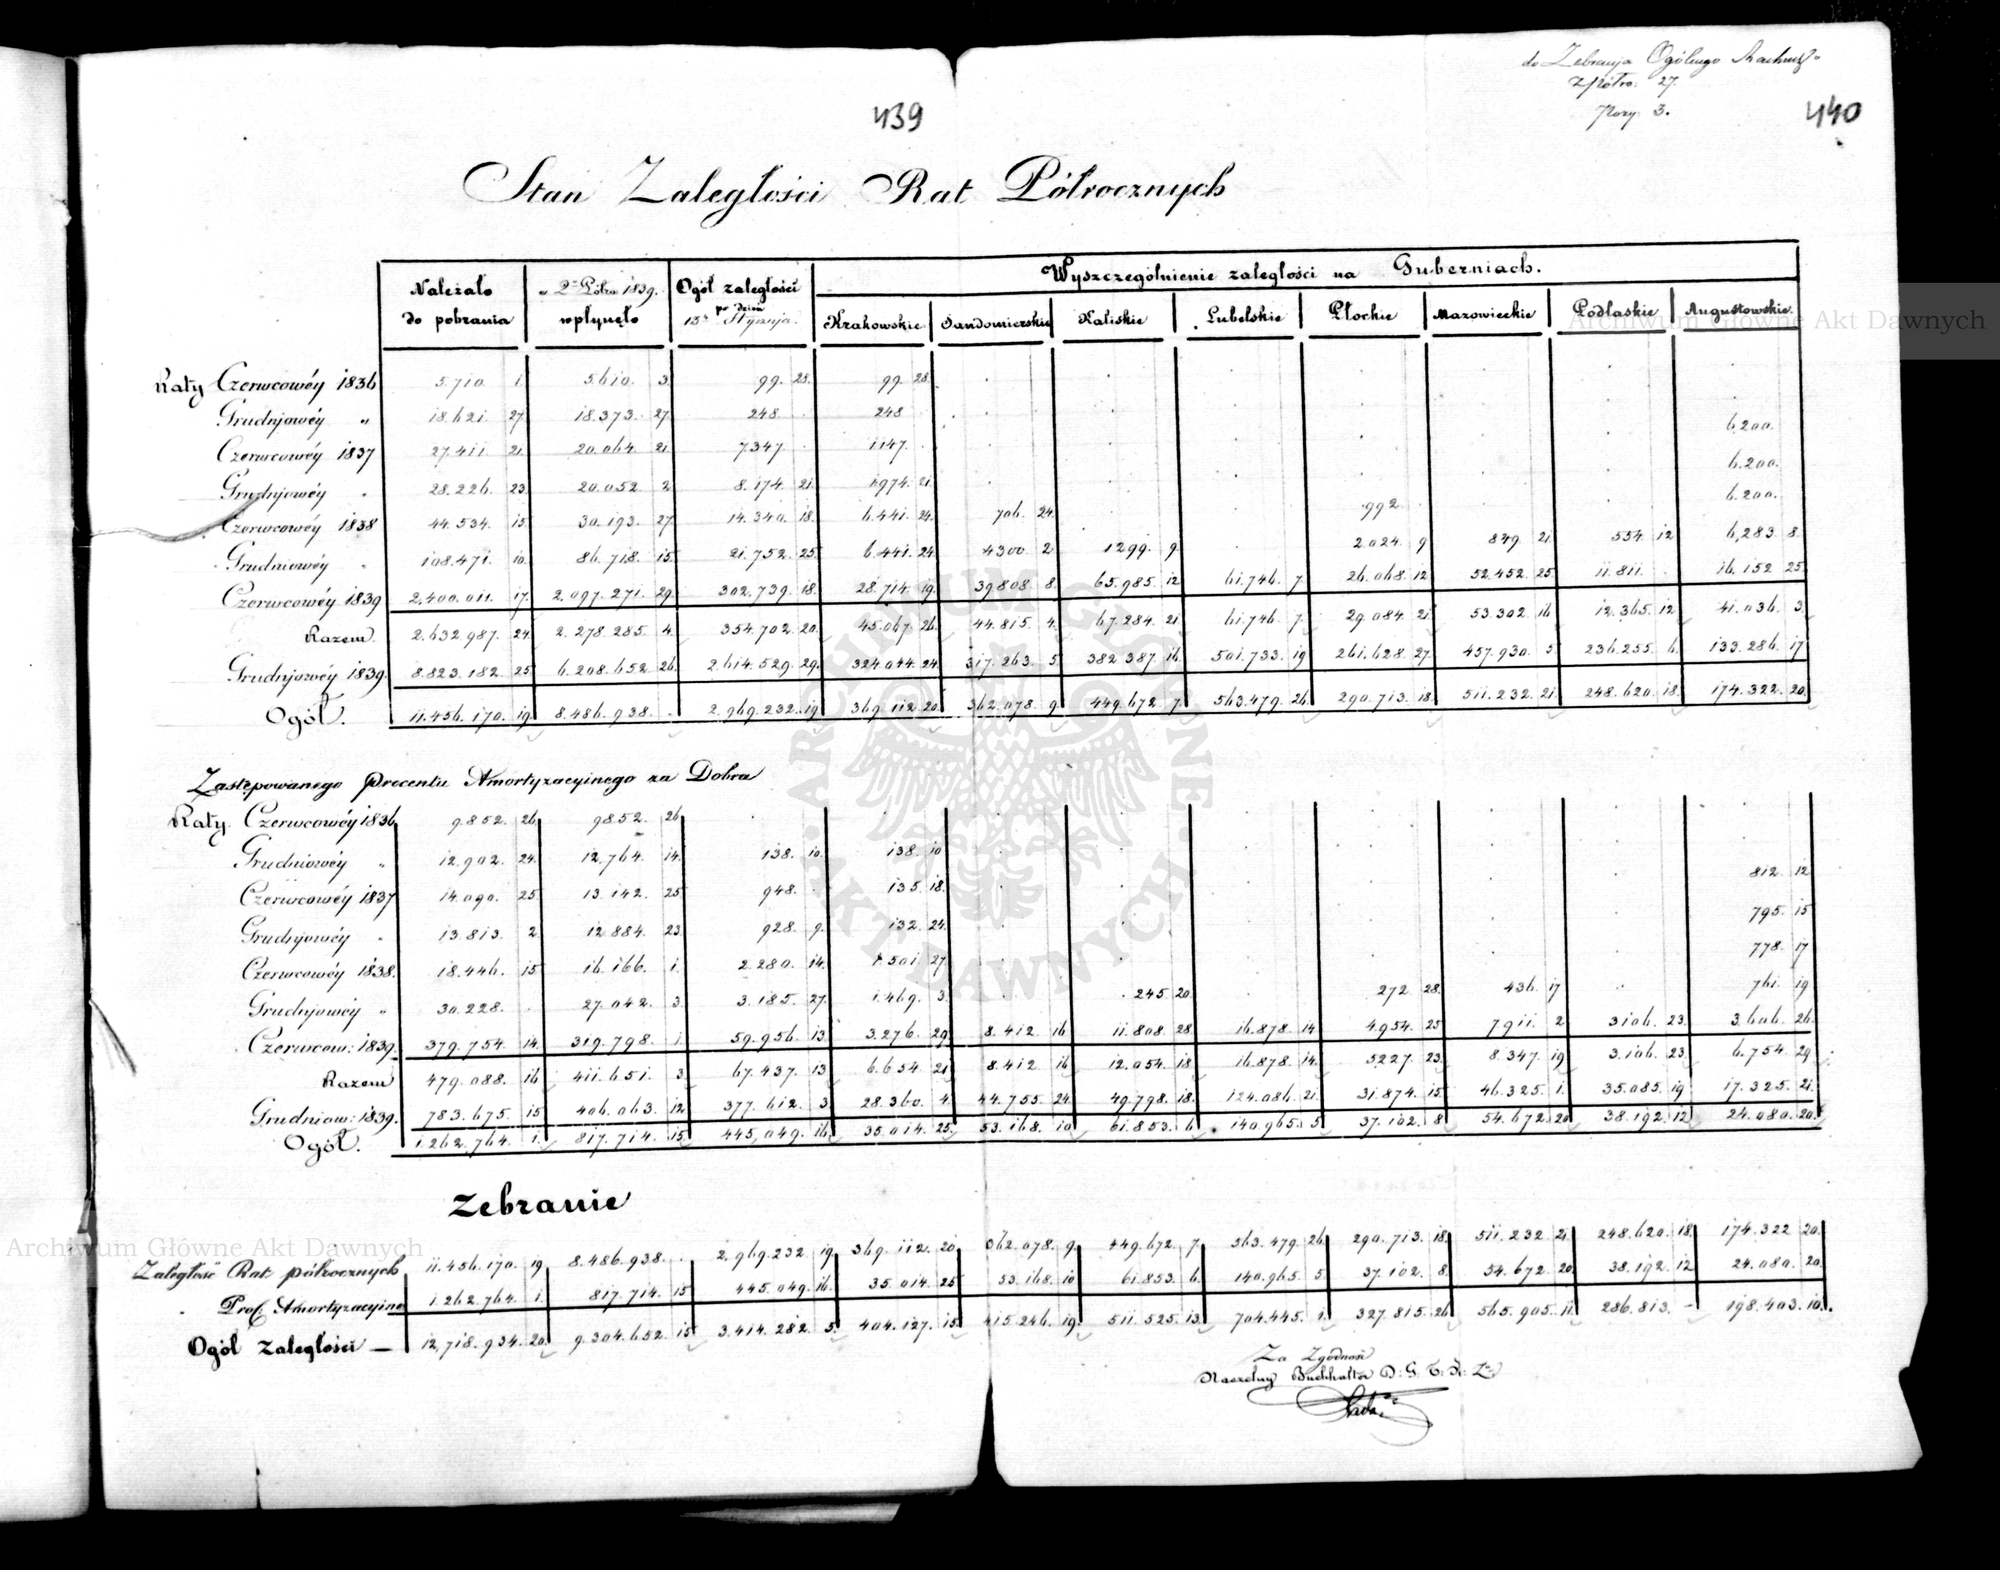 do Zebrania Ogólnego Rachun.
z półro. 27.
Pozy. 3.
439
440
Stan Zaległości Rat Półrocznych
Należało do pobrania | w 2m Półro 1839. wpłynęło | Ogół zaległości po dzień 13n Stycznia. | Wyszczególnienie zaległości na Guberniach.
Krakowskie | Sandomierskie | Kaliskie | Lubelskie | Płockie | Mazowieckie | Podlaskie | Augustowskie
Raty Czerwcowéy 1836 | 5.710. 1. | 5.610. 3. | 99. 28. | 99. 28. | . | . | . | . | . | . | .
Grudniowéy " | 18.621. 27. | 18.373. 27. | 248. . | 248 | . | . | . | . | . | . | .
Czerwcowéy 1837 | 27.411. 21. | 20.064. 21. | 7.347. . | 1147. | . | . | . | . | . | . | 6.200.
Grudniowéy " | 28.226. 23. | 20.052. 2. | 8.174. 21. | 1974. 21. | . | . | . | . | . | . | 6.200.
Czerwcowéy 1838 | 44.534. 15. | 30.193. 27. | 14.340. 18. | 6.441. 24. | 706. 24. | . | . | 992. | . | . | 6.200.
Grudniowéy " | 108.471. 10. | 86.718. 15. | 21.752. 25. | 6.441. 24 | 4300. 2 | 1299. 9. | . | 2.024. 9 | 849. 21. | 554. 12 | 6,283. 8.
Czerwcowéy 1839 | 2,400.011. 17. | 2.097.271. 29. | 302.739. 18. | 28.714. 19. | 39808. 8. | 65.985. 12 | 61.746. 7. | 26.068. 12 | 52.452. 25. | 11.811. . | 16.152. 25.
Razem. | 2.632.987. 24. | 2.278.285. 4. | 354.702. 20. | 45.067. 26. | 44.815. 4. | 67.284. 21. | 61.746. 7. | 29.084. 21. | 53.302. 16 | 12.365. 12 | 41.036. 3.
Grudniowéy 1839. | 8.823.182. 25. | 6.208.652. 26. | 2.614.529. 29. | 324.044. 24. | 317.263. 5. | 382.387. 16. | 501.733. 19 | 261.628. 27 | 457.930. 5 | 236.255. 6. | 133.286. 17
Ogół. | 11.456.170. 19. | 8.486.938. . | 2.969.232. 19. | 369.112. 20. | 362.078. 9. | 449.672. 7. | 563.479. 26. | 290.713. 18. | 511.232. 21. | 248.620. 18. | 174.322. 20.
Zastępowanego procentu Amortyzacyinego za Dobra
Raty Czerwcowéy 1836. | 9852. 26. | 9852. 26 | . | . | . | . | . | . | . | . | .
Grudniowéy " | 12.902. 24. | 12.764. 14. | 138. 10. | 138. 10 | . | . | . | . | . | . | .
Czerwcowéy 1837 | 14.090. 25. | 13.142. 25 | 948. . | 135. 18. | . | . | . | . | . | . | 812. 12
Grudniowéy " | 13.813. 2 | 12.884. 23. | 928. 9. | 132. 24. | . | . | . | . | . | . | 795. 15
Czerwcowéy 1838. | 18.446. 15 | 16.166. 1. | 2.280. 14. | 1.501. 27 | . | . | . | . | . | . | 778. 17
Grudniowéy " | 30.228. . | 27.042. 3. | 3.185. 27. | 1.469. 3. | . | 245. 20. | . | 272. 28. | 436. 17 | . | 761. 19
Czerwcow: 1839. | 379.754. 14. | 319.798. 1. | 59.956. 13. | 3.276. 29. | 8.412. 16 | 11.808. 28. | 16.878. 14 | 4954. 25 | 7911. 2 | 3106. 23. | 3.606. 26.
Razem | 479.088. 16 | 411.651. 3. | 67.437. 13 | 6.654. 21 | 8.412. 16 | 12.054. 18 | 16.878. 14. | 5227. 23. | 8.347. 19 | 3.106. 23. | 6.754. 29
Grudniow: 1839. | 783.675. 15 | 406.063. 12. | 377.612. 3. | 28.360. 4. | 44.755. 24. | 49.798. 18. | 124.086. 21. | 31.874. 15. | 46.325. 1. | 35.085. 19 | 17.325. 21.
Ogół. | 1.262,764. 1. | 817.714. 15. | 445,049. 16. | 35.014. 25. | 53.168. 10 | 61.853. 6. | 140.965. 5. | 37.102. 8. | 54.672. 20. | 38.192. 12. | 24.080. 20.
Zebranie
Zaległość Rat półrocznych | 11.456.170. 19. | 8.486.938. . | 2.969.232. 19. | 369.112. 20. | 362.078. 9. | 449.672. 7. | 563.479. 26. | 290.713. 18. | 511.232. 21. | 248.620. 18. | 174.322 20.
" Proc. Amortyzacyine | 1.262.764. 1. | 817.714. 15 | 445.049. 16. | 35.014. 25 | 53.168. 10 | 61.853. 6. | 140.965. 5. | 37.102. 8. | 54.672. 20. | 38.192. 12 | 24.080. 20.
Ogół Zaległości — | 12,718.934. 20. | 9.304.652. 15 | 3.414.282. 5. | 404.127. 15 | 415.246. 19. | 511.525. 13. | 704.445. 1. | 327.815. 26 | 565.905. 11. | 286.813. - | 198.403. 10.
Za Zgodność
Naczelny Buchhalter D: G. T. K: Z
Archiwum Główne Akt Dawnych
Archiwum Główne Akt Dawnych
ARCHIWUM GŁÓWNE AKT DAWNYCH